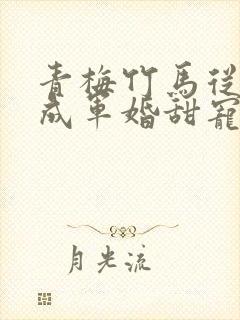 青梅竹馬從
成軍婚甜寵
月光流